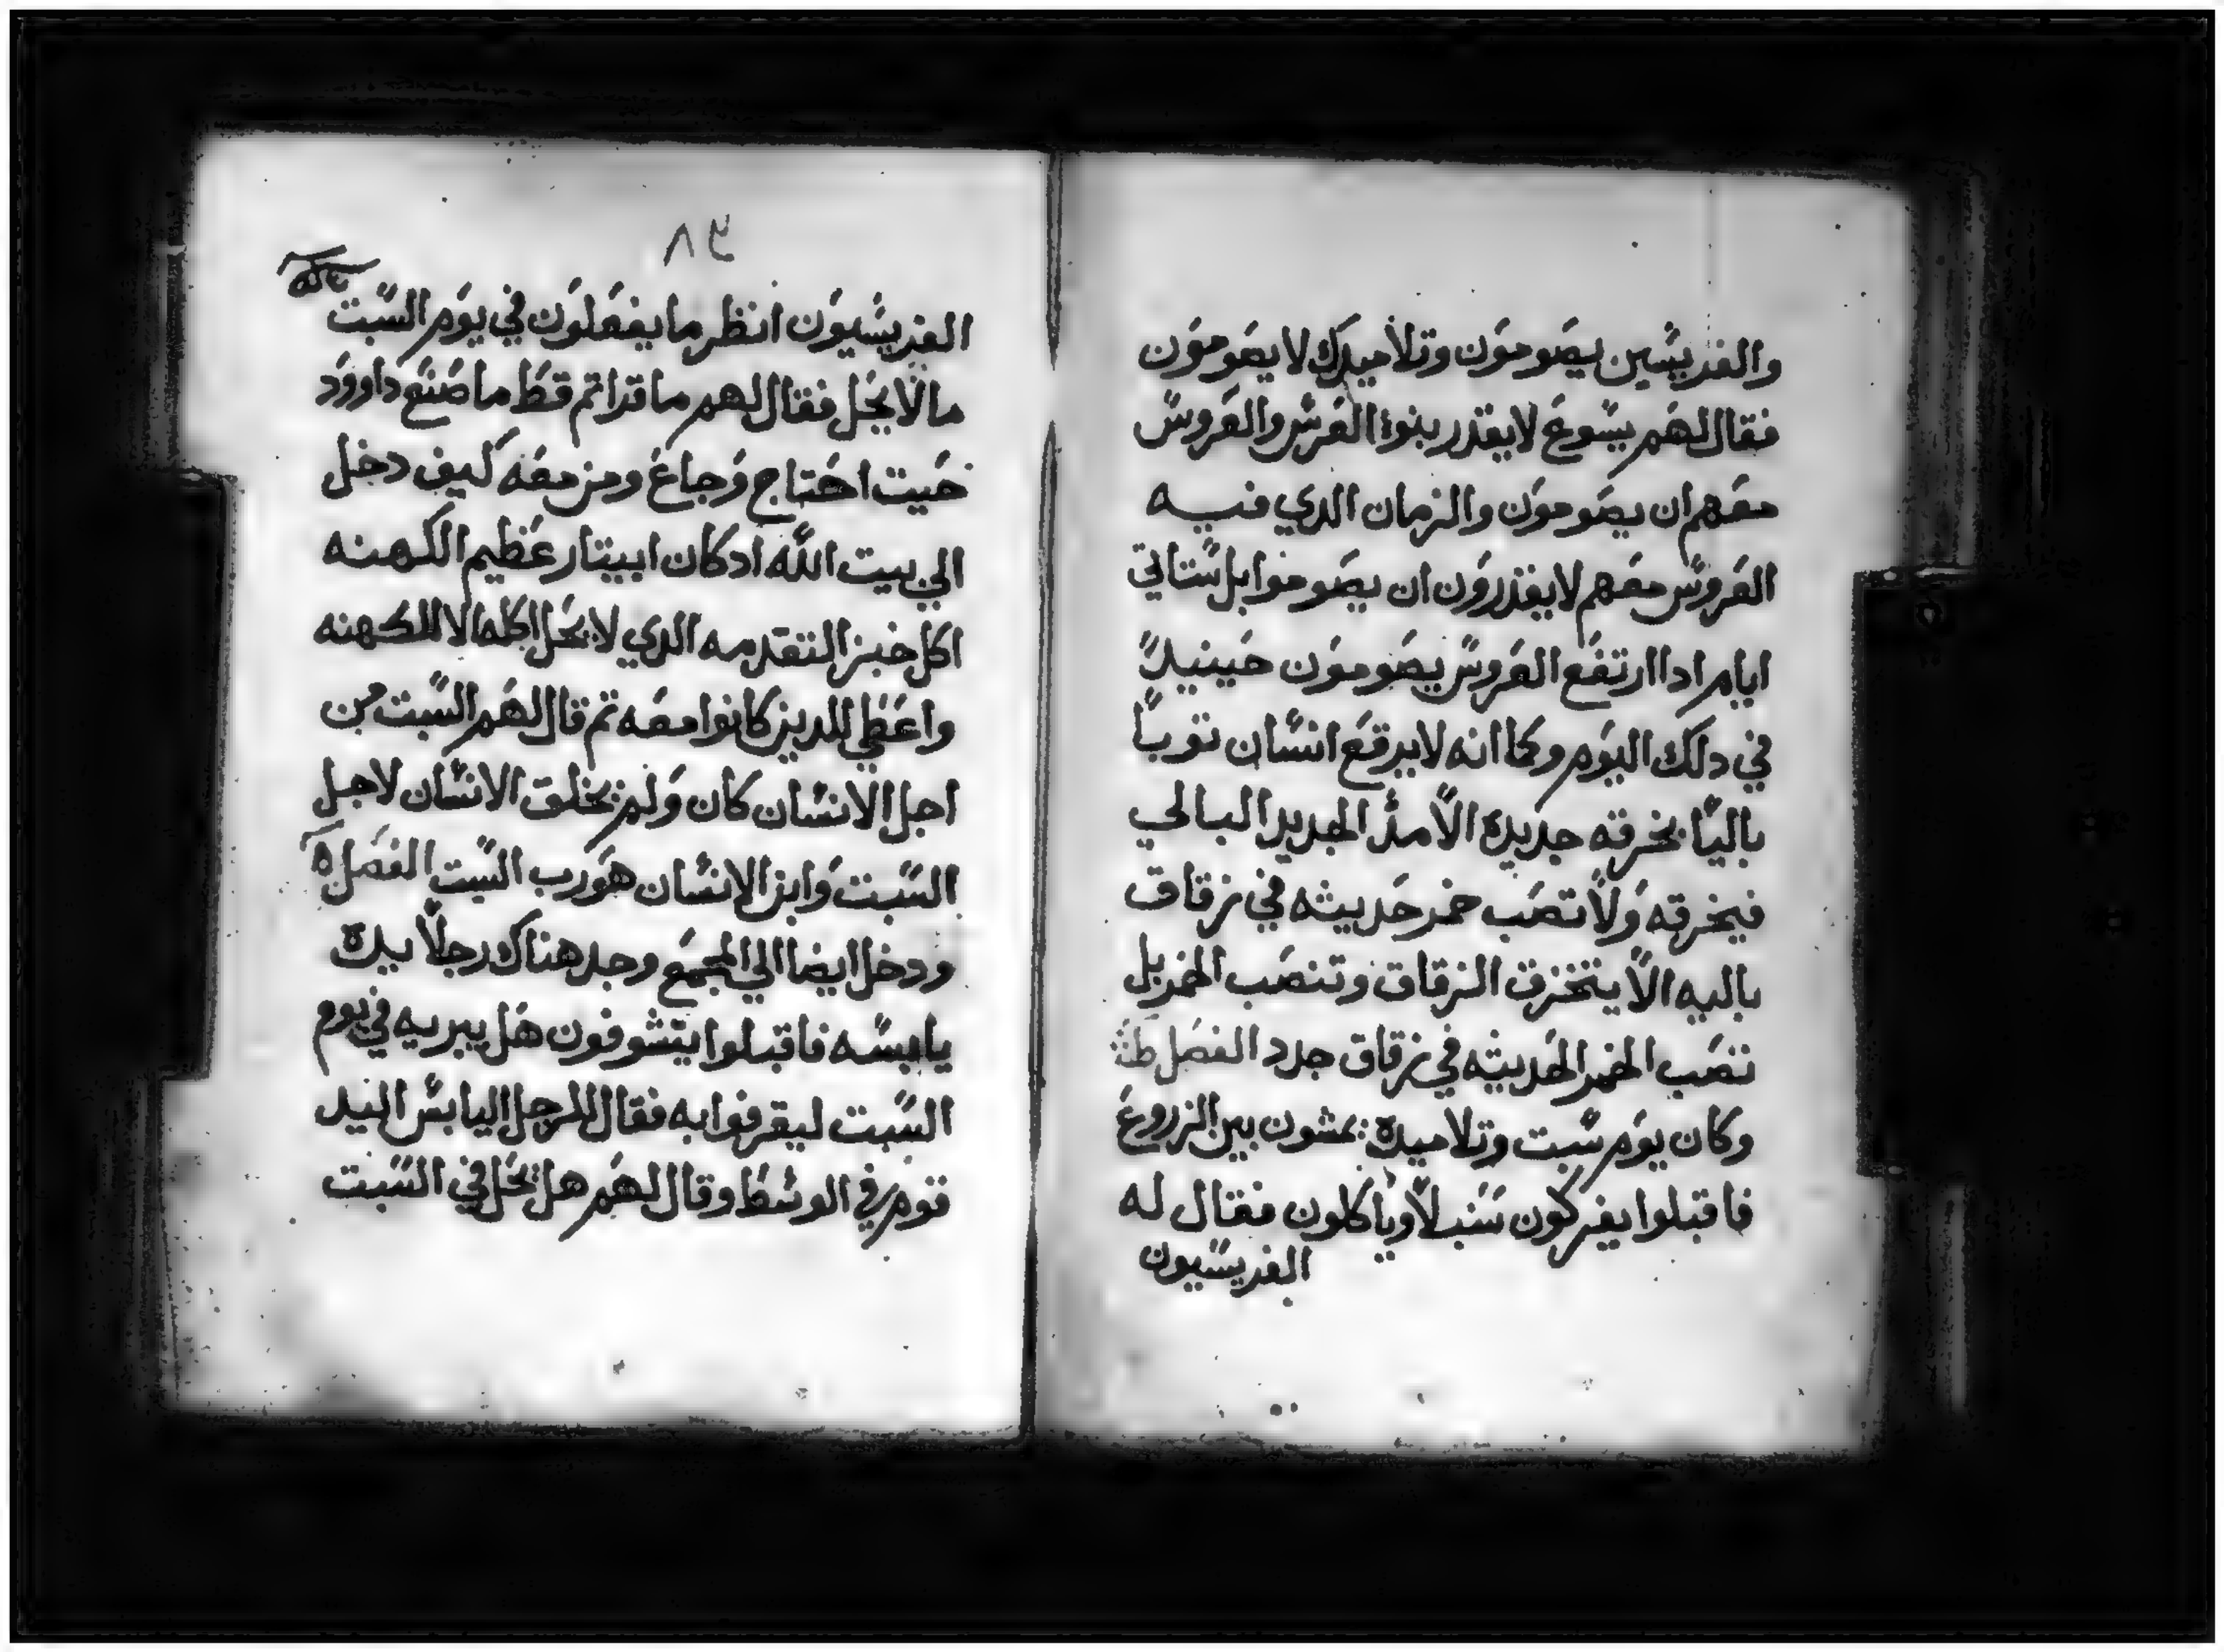 والفريسين يصومون وتلاميدك لا يصومون
فقال لهم يسوع لا يقدر بنوا العرس والعروس
معهم ان يصومون والزمان الدي فيه
العروس معهم لا يقدرون ان يصوموا بل ستاتي
ايام ادا ارتفع العروس يصومون حينيد
في دلك اليوم وكما انه لا يرقع انسان توبا
باليا بخرقه جديدة الا مد الجديد البالي
فيخرقه ولا تصب خمر حديثه في زقاق
باليه الا يتخزق الزقاق وتنصب الخمر بل
تصب الخمر الحديثه في زقاق جدد الفصل
وكان يوم سبت وتلاميدة يمشون بين الزروع
فاقبلوا يفركون سنبلا وياكلون فقال له
الفريسيون
٨٣
الفريسيون انظر ما يفعلون في يوم السبت
مالا يحل فقال لهم ما قراتم قط ما صنع داوود
حيت احتاج وجاع ومن معه كيف دخل
الي بيت الله ادكان ابيتار عظيم الكهنه
اكل خبز التقدمه الدي لا يحل اكله الا للكهنه
واعطي للدين كانوا معه تم قال لهم السبت من
اجل الانسان كان ولم يخلق الانسان لاجل
السبت وابن الانسان هو رب السبت الفصل
ودخل ايضا الي المجمع وجد هناك رجلا بيدة
يابسه فاقبلوا يتشوفون هل يبريه في يوم
السبت ليقرفوا به فقال للرجل اليابس اليد
قوم في الوسط وقال لهم هل يحل في السبت